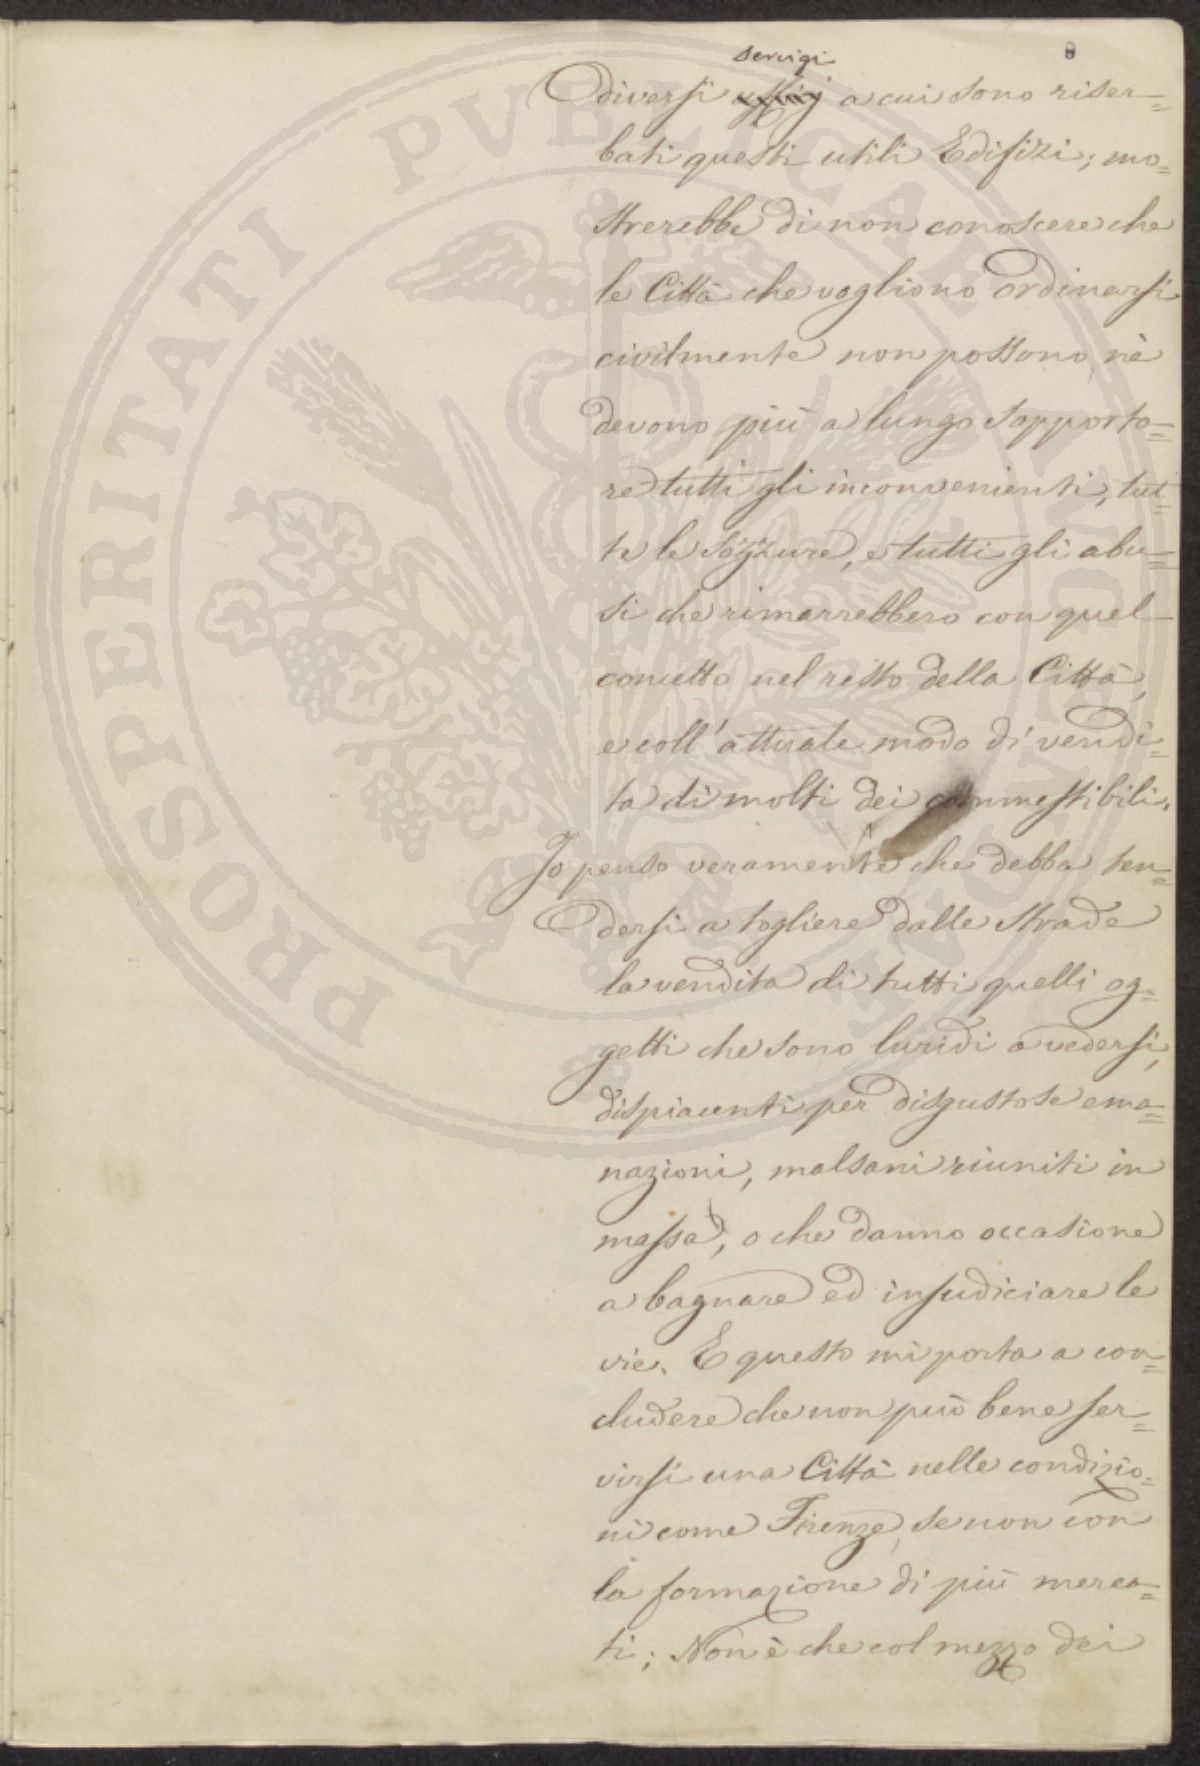 8
servigi
diversi ufficj a cui sono riser=
bati questi utili Edifizi; mo=
strerebbe di non conoscere che
le Città che vogliono ordinarsi
civilmente non possono, nè
devono più a lungo sopporta=
re tutti gli inconvenienti, tut=
te le sozzure, e tutti gli abu=
si che rimarrebbero con quel
concetto nel resto della Città,
e coll'attuale modo di vendi=
ta di molti dei commestibili.
Io penso veramente che debba ten=
dersi a togliere dalle strade
la vendita di tutti quelli og=
getti che sono luridi a vedersi,
dispiacenti per disgustose ema=
nazioni, malsani riuniti in
massa, o che danno occasione
a bagnare ed insudiciare le
vie. E questo mi porta a con=
cludere che non può bene ser=
virsi una Città nelle condizio=
ni come Firenze, se non con
la formazione di più merca=
ti; Non è che col mezzo dei
PROSPERITATI PUBLICAE AUGENDAE